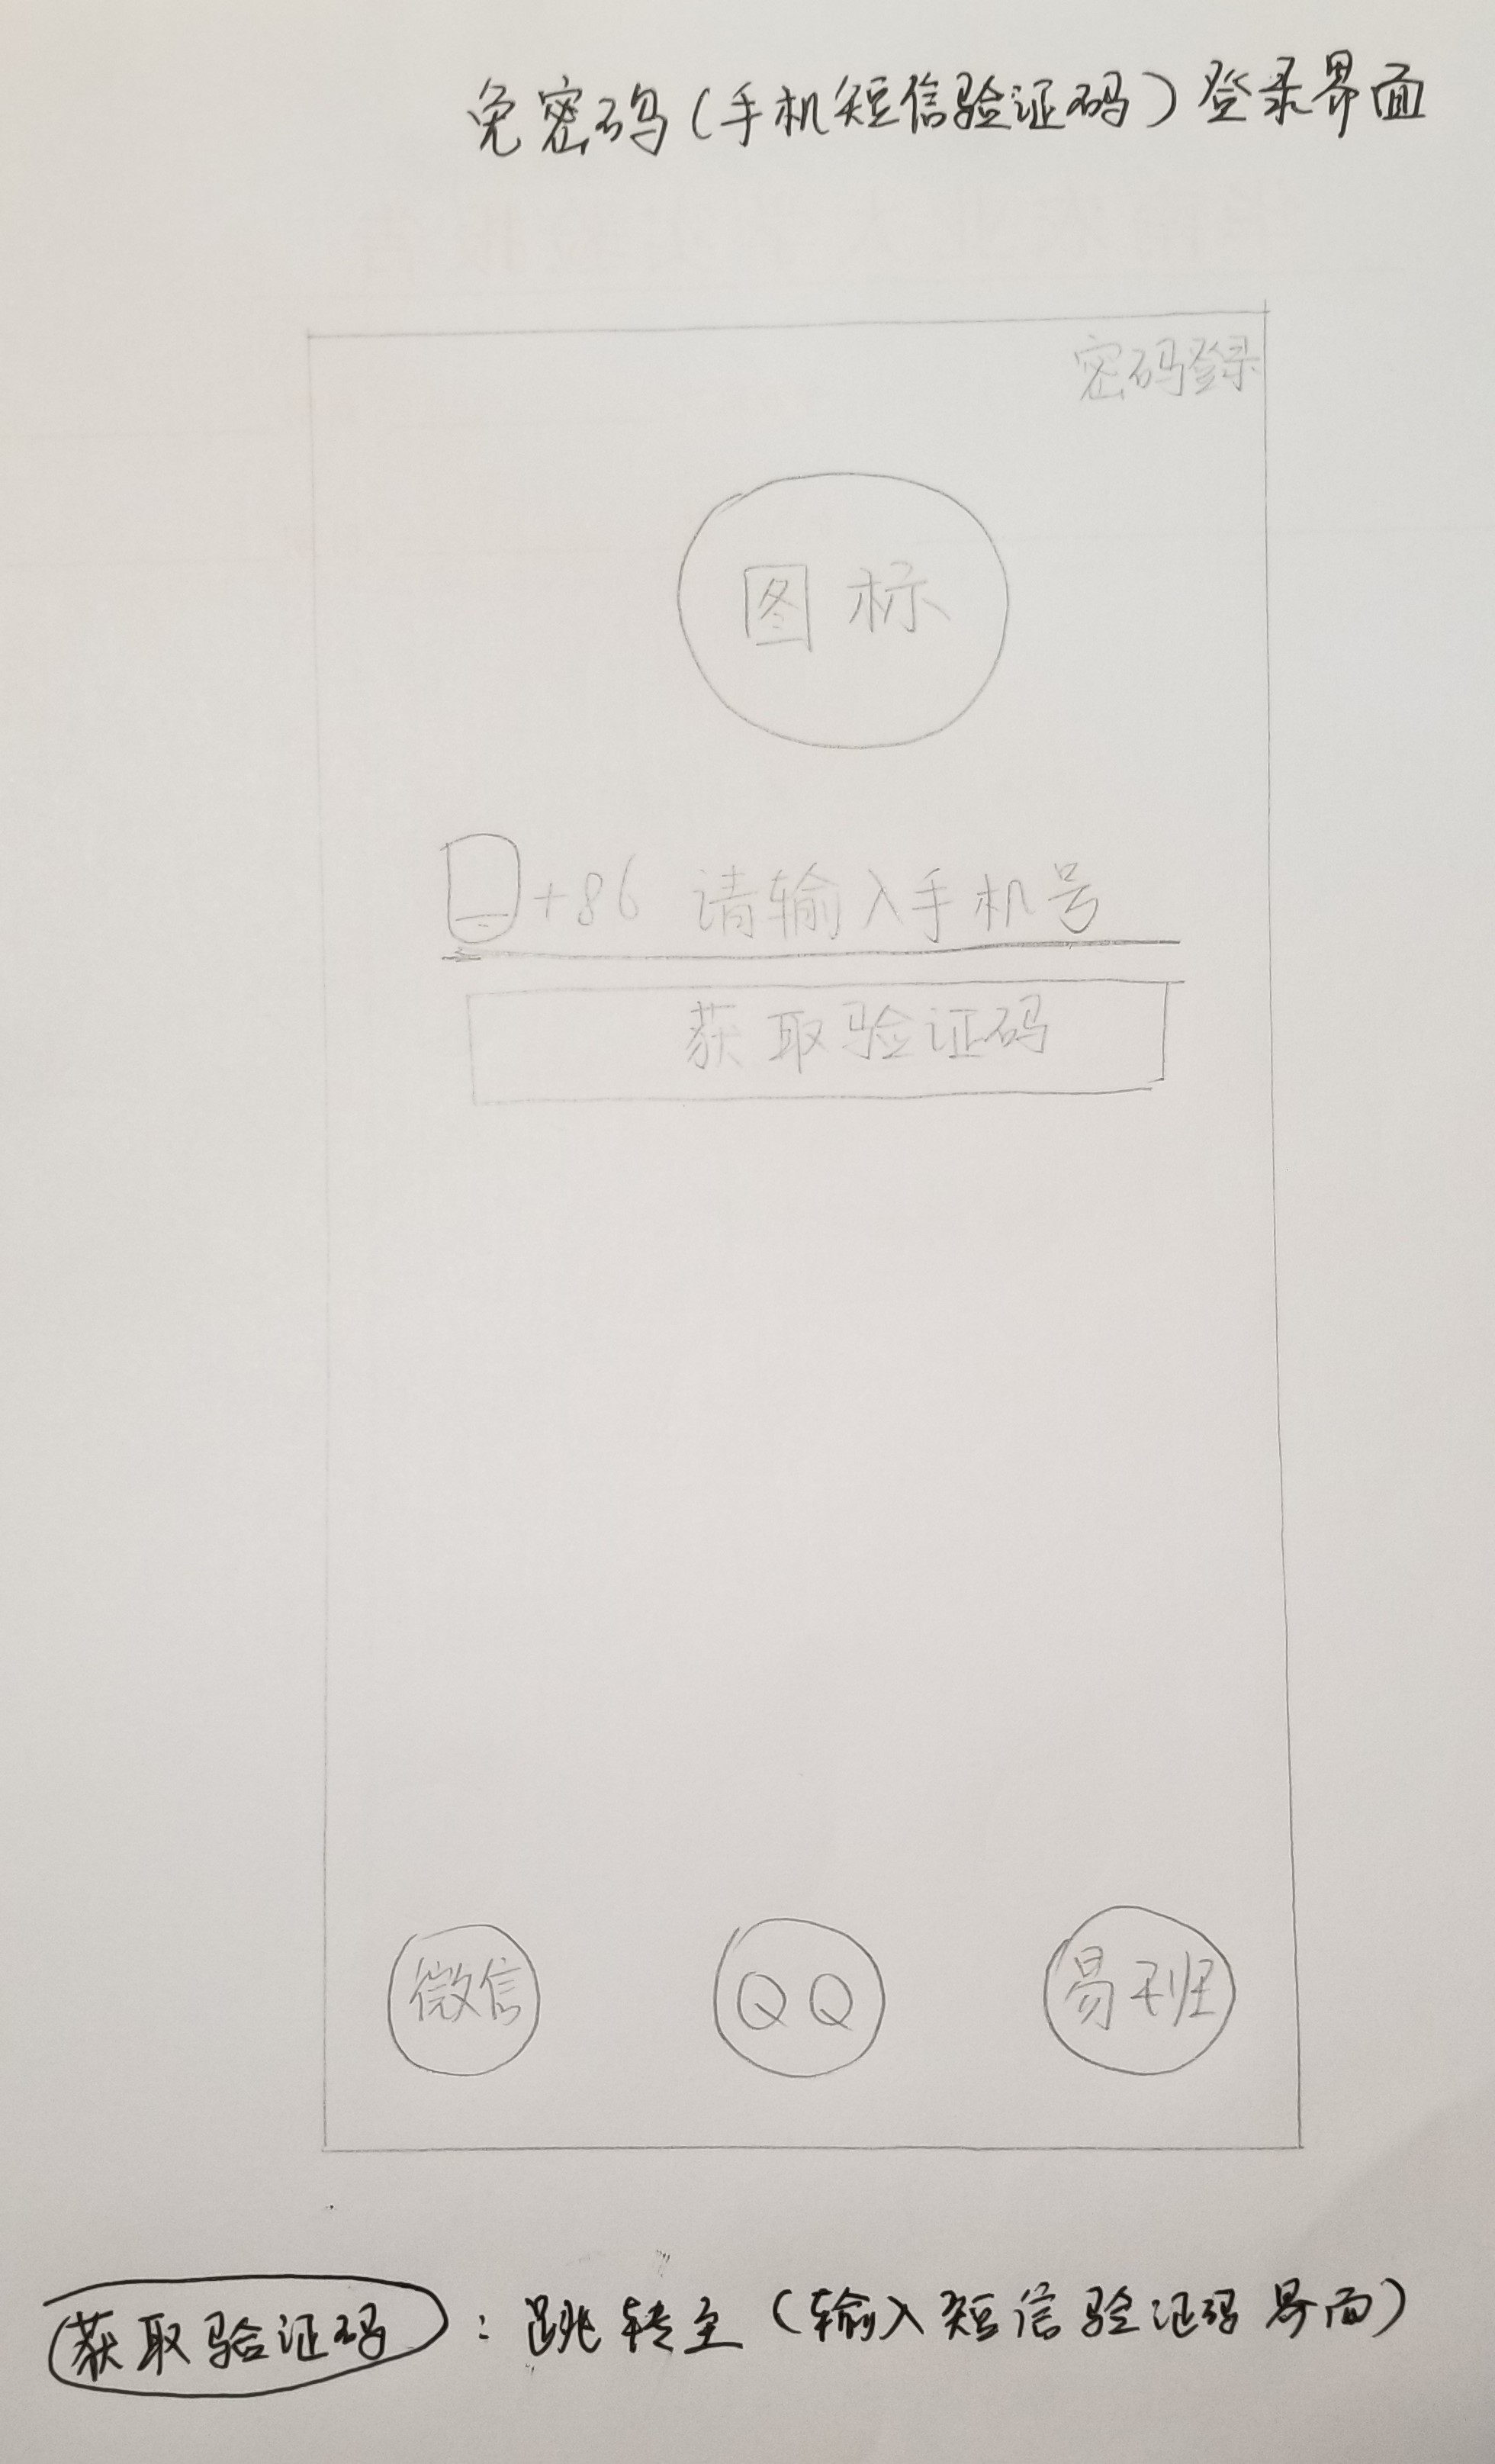 免密码(手机短信验证码)登录界面
密码登录
图标
+86 请输入手机号
获取验证码
微信
QQ
易班
获取验证码:跳转至(输入短信验证码界面)